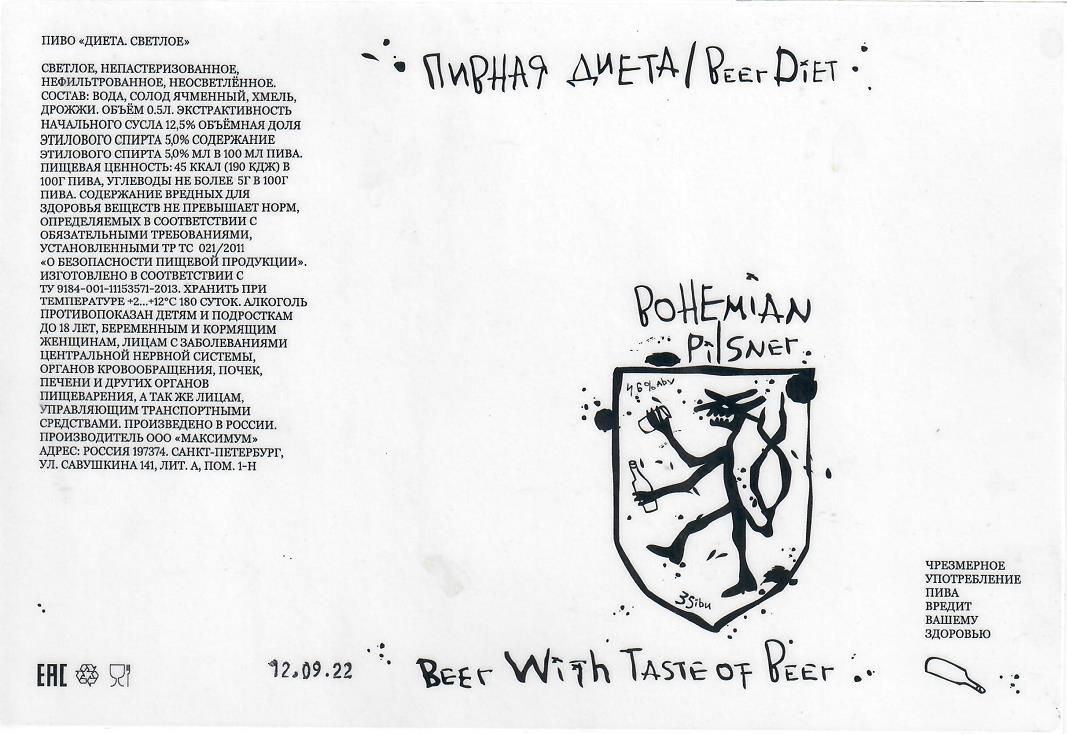 ПИВО «ДИЕТА. СВЕТЛОЕ»
СВЕТЛОЕ, НЕПАСТЕРИЗОВАННОЕ,
НЕФИЛЬТРОВАННОЕ, НЕОСВЕТЛЁННОЕ.
СОСТАВ: ВОДА, СОЛОД ЯЧМЕННЫЙ, ХМЕЛЬ,
ДРОЖЖИ. ОБЪЁМ 0.5Л. ЭКСТРАКТИВНОСТЬ
НАЧАЛЬНОГО СУСЛА 12,5% ОБЪЁМНАЯ ДОЛЯ
ЭТИЛОВОГО СПИРТА 5,0% СОДЕРЖАНИЕ
ЭТИЛОВОГО СПИРТА 5,0% МЛ В 100 МЛ ПИВА.
ПИЩЕВАЯ ЦЕННОСТЬ: 45 ККАЛ (190 КДЖ) В
100Г ПИВА, УГЛЕВОДЫ НЕ БОЛЕЕ 5Г В 100Г
ПИВА. СОДЕРЖАНИЕ ВРЕДНЫХ ДЛЯ
ЗДОРОВЬЯ ВЕЩЕСТВ НЕ ПРЕВЫШАЕТ НОРМ,
ОПРЕДЕЛЯЕМЫХ В СООТВЕТСТВИИ С
ОБЯЗАТЕЛЬНЫМИ ТРЕБОВАНИЯМИ,
УСТАНОВЛЕННЫМИ ТР ТС 021/2011
«О БЕЗОПАСНОСТИ ПИЩЕВОЙ ПРОДУКЦИИ».
ИЗГОТОВЛЕНО В СООТВЕТСТВИИ С
ТУ 9184-001-11153571-2013. ХРАНИТЬ ПРИ
ТЕМПЕРАТУРЕ +2...+12°С 180 СУТОК. АЛКОГОЛЬ
ПРОТИВОПОКАЗАН ДЕТЯМ И ПОДРОСТКАМ
ДО 18 ЛЕТ, БЕРЕМЕННЫМ И КОРМЯЩИМ
ЖЕНЩИНАМ, ЛИЦАМ С ЗАБОЛЕВАНИЯМИ
ЦЕНТРАЛЬНОЙ НЕРВНОЙ СИСТЕМЫ,
ОРГАНОВ КРОВООБРАЩЕНИЯ, ПОЧЕК,
ПЕЧЕНИ И ДРУГИХ ОРГАНОВ
ПИЩЕВАРЕНИЯ, А ТАК ЖЕ ЛИЦАМ,
УПРАВЛЯЮЩИМ ТРАНСПОРТНЫМИ
СРЕДСТВАМИ. ПРОИЗВЕДЕНО В РОССИИ.
ПРОИЗВОДИТЕЛЬ ООО «МАКСИМУМ»
АДРЕС: РОССИЯ 197374. САНКТ-ПЕТЕРБУРГ,
УЛ. САВУШКИНА 141, ЛИТ. А, ПОМ. 1-Н
EAC
12.09.22
ПИВНАЯ ДИЕТА/BEEr DiET
BOHEMiAN
PilSNEr
4,6%ABV
35ibu
BEEr WiTh TASTE OF BEEr
ЧРЕЗМЕРНОЕ
УПОТРЕБЛЕНИЕ
ПИВА
ВРЕДИТ
ВАШЕМУ
ЗДОРОВЬЮ